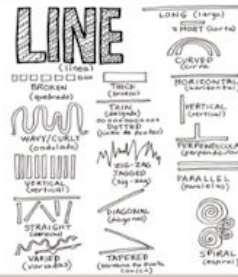 LINE
(línea)
BROKEN
(quebrada)
WAVY/CURLY
(ondulado)
VERTICAL
(vertical)
STRAIGHT
VARIED
(variadas)
THICK
THIN
(delgado)
DOTTED
ZIG-ZAG
JAGGED
(zig-zag)
DIAGONAL
(diagonal)
TAPERED
LONG (largo)
SHORT (corto)
CURVED
HORIZONTAL
(horizontal)
VERTICAL
(vertical)
PERPENDICULAR
PARALLEL
(paralelas)
SPIRAL
(espiral)